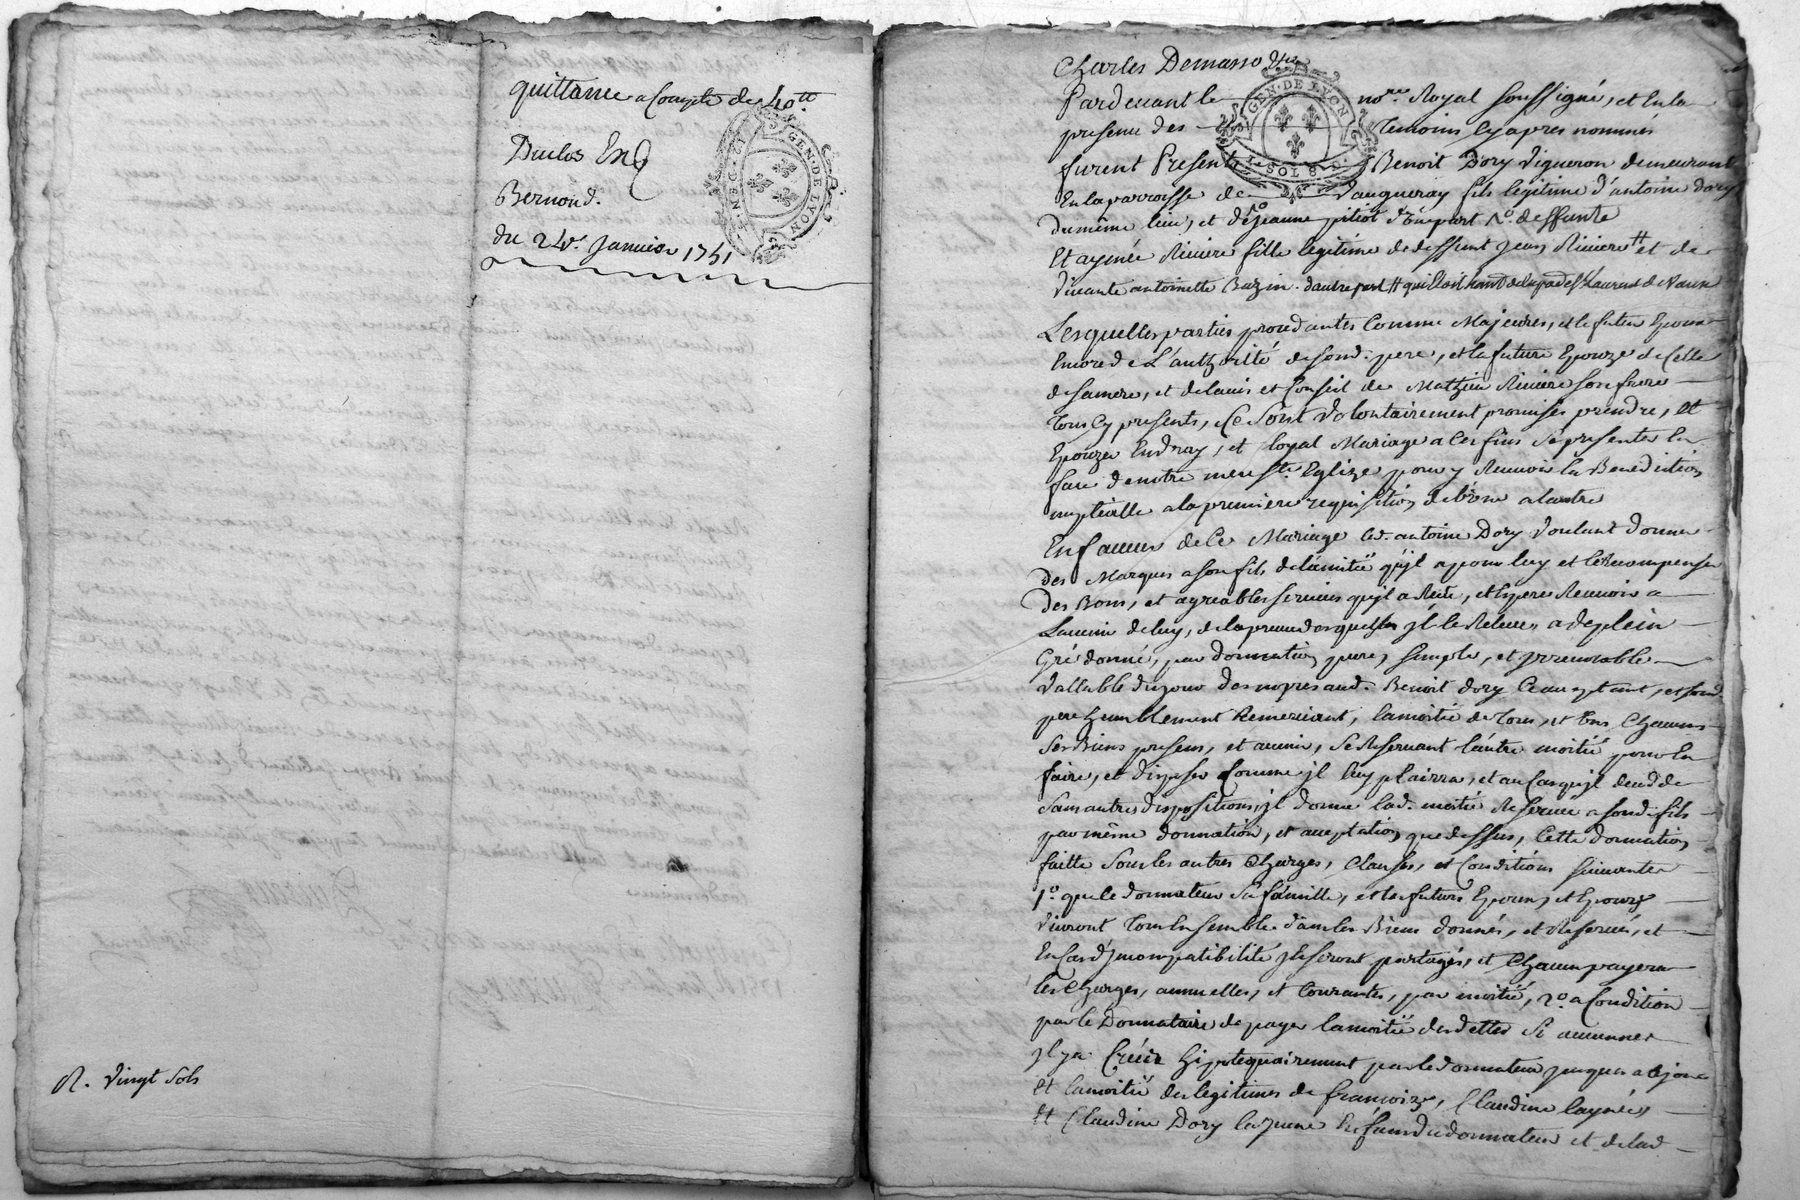 quittance a Compte de 40tt
Duclos Et
Bernond.
du 24e. Janvier 1751
GEN. DE LYON
R. vingt sols
Charles Demasso
GEN. DE LYON
SOL 8 D.
Pardevant le nore. Royal soussigné, et En la
presence des Temoins Cy apres nommés
furent Presents Benoit Dory vigneron demeurant
En la parroisse de vaugneray fils legitime d'antoine dory
du même lieu, et de jeanne piliot d'Une part deffunte
Et aymée Riviere fille legitime de deffunt jean Riviere # et de
vivante antoinette Bazin. d'autre part # de St Laurent de Vaux
Lesquelles parties procedantes Comme Majeures, et le futur Epoux
Encore de L'authorité de sond. pere, et la future Epouze de Celle
de sa mere, et de l'avis et Conseil de Mathieu Riviere son frere
Tous Cy presents, se sont volontairement promises prendre, et
Epouzer En vray, et loyal Mariage a Ces fins se presenter En
face de notre mere Ste. Eglize pour y Recevoir la Benediction
nuptialle a la premiere requisition de l'Une a l'autre
En faveur de Ce Mariage led. antoine Dory voulant donner
des Marques a son fils de l'amitié qu'jl a pour luy et le Recompenser
des Bons, et agreables services qu'jl a Receu, et Espere Recevoir a
L'avenir de luy, de la preuve desquels jl le Releve, a de plein
Gré donné, par donnation pure, simple, et jrrevocable
vallable du jour des nopces aud. Benoit dory Ceacceptant, et sond.
pere humblement Remerciant, la moitié de Tous, et Uns Chacuns
ses Biens presens, et avenir, se Reservant l'autre moitié pour En
faire, et disposer Comme jl luy plairra, et au Cas qu'jl decede
sans autres dispositions, jl donne lad. moitié Reservée a sond. fils
par même donnation, et acceptation que dessus, Cette donnation
faitte sous les autres Charges, Clauses, et Conditions suivantes
1o. que le donnateur sa famille, et les futurs Epoux, et Epouze
vivront Tous Ensemble dans les Biens donnés, et Reservés, et
En Cas d'jncompatibilité jls seront partagés, et Chacun payera
les Charges, annuelles, et Courantes, par moitié, 2o. a Condition
par le Donnataire de payer la moitié des dettes si aucunes
jl y a Créés hipotequairement par le donnateur jusques a Cejour
et la moitié des legitimes de françoize, Claudine l'aynée,
Et Claudine Dory la jeune Enfans du donnateur et de lad.